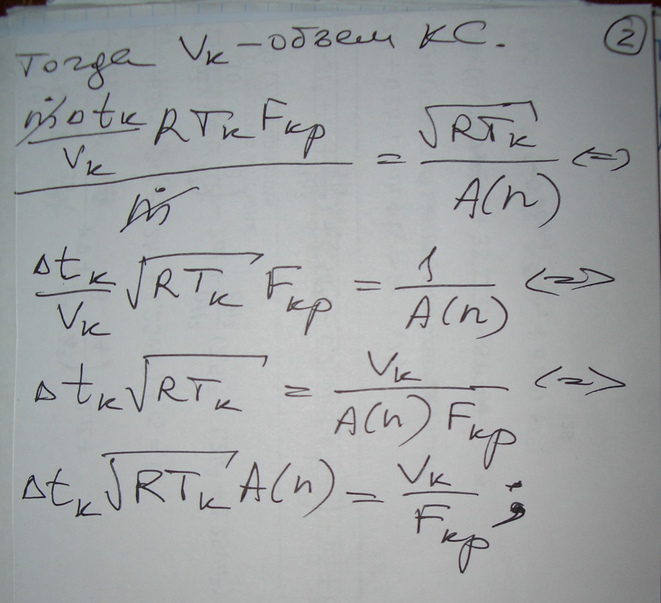 Тогда Vк – объем КС. ②
(ṁΔtк / Vк) RTк Fкр / ṁ = √(RTк) / A(n) <=>
(Δtк / Vк) √(RTк) Fкр = 1 / A(n) <=>
Δtк √(RTк) = Vк / (A(n) Fкр) <=>
Δtк √(RTк) A(n) = Vк / Fкр ;